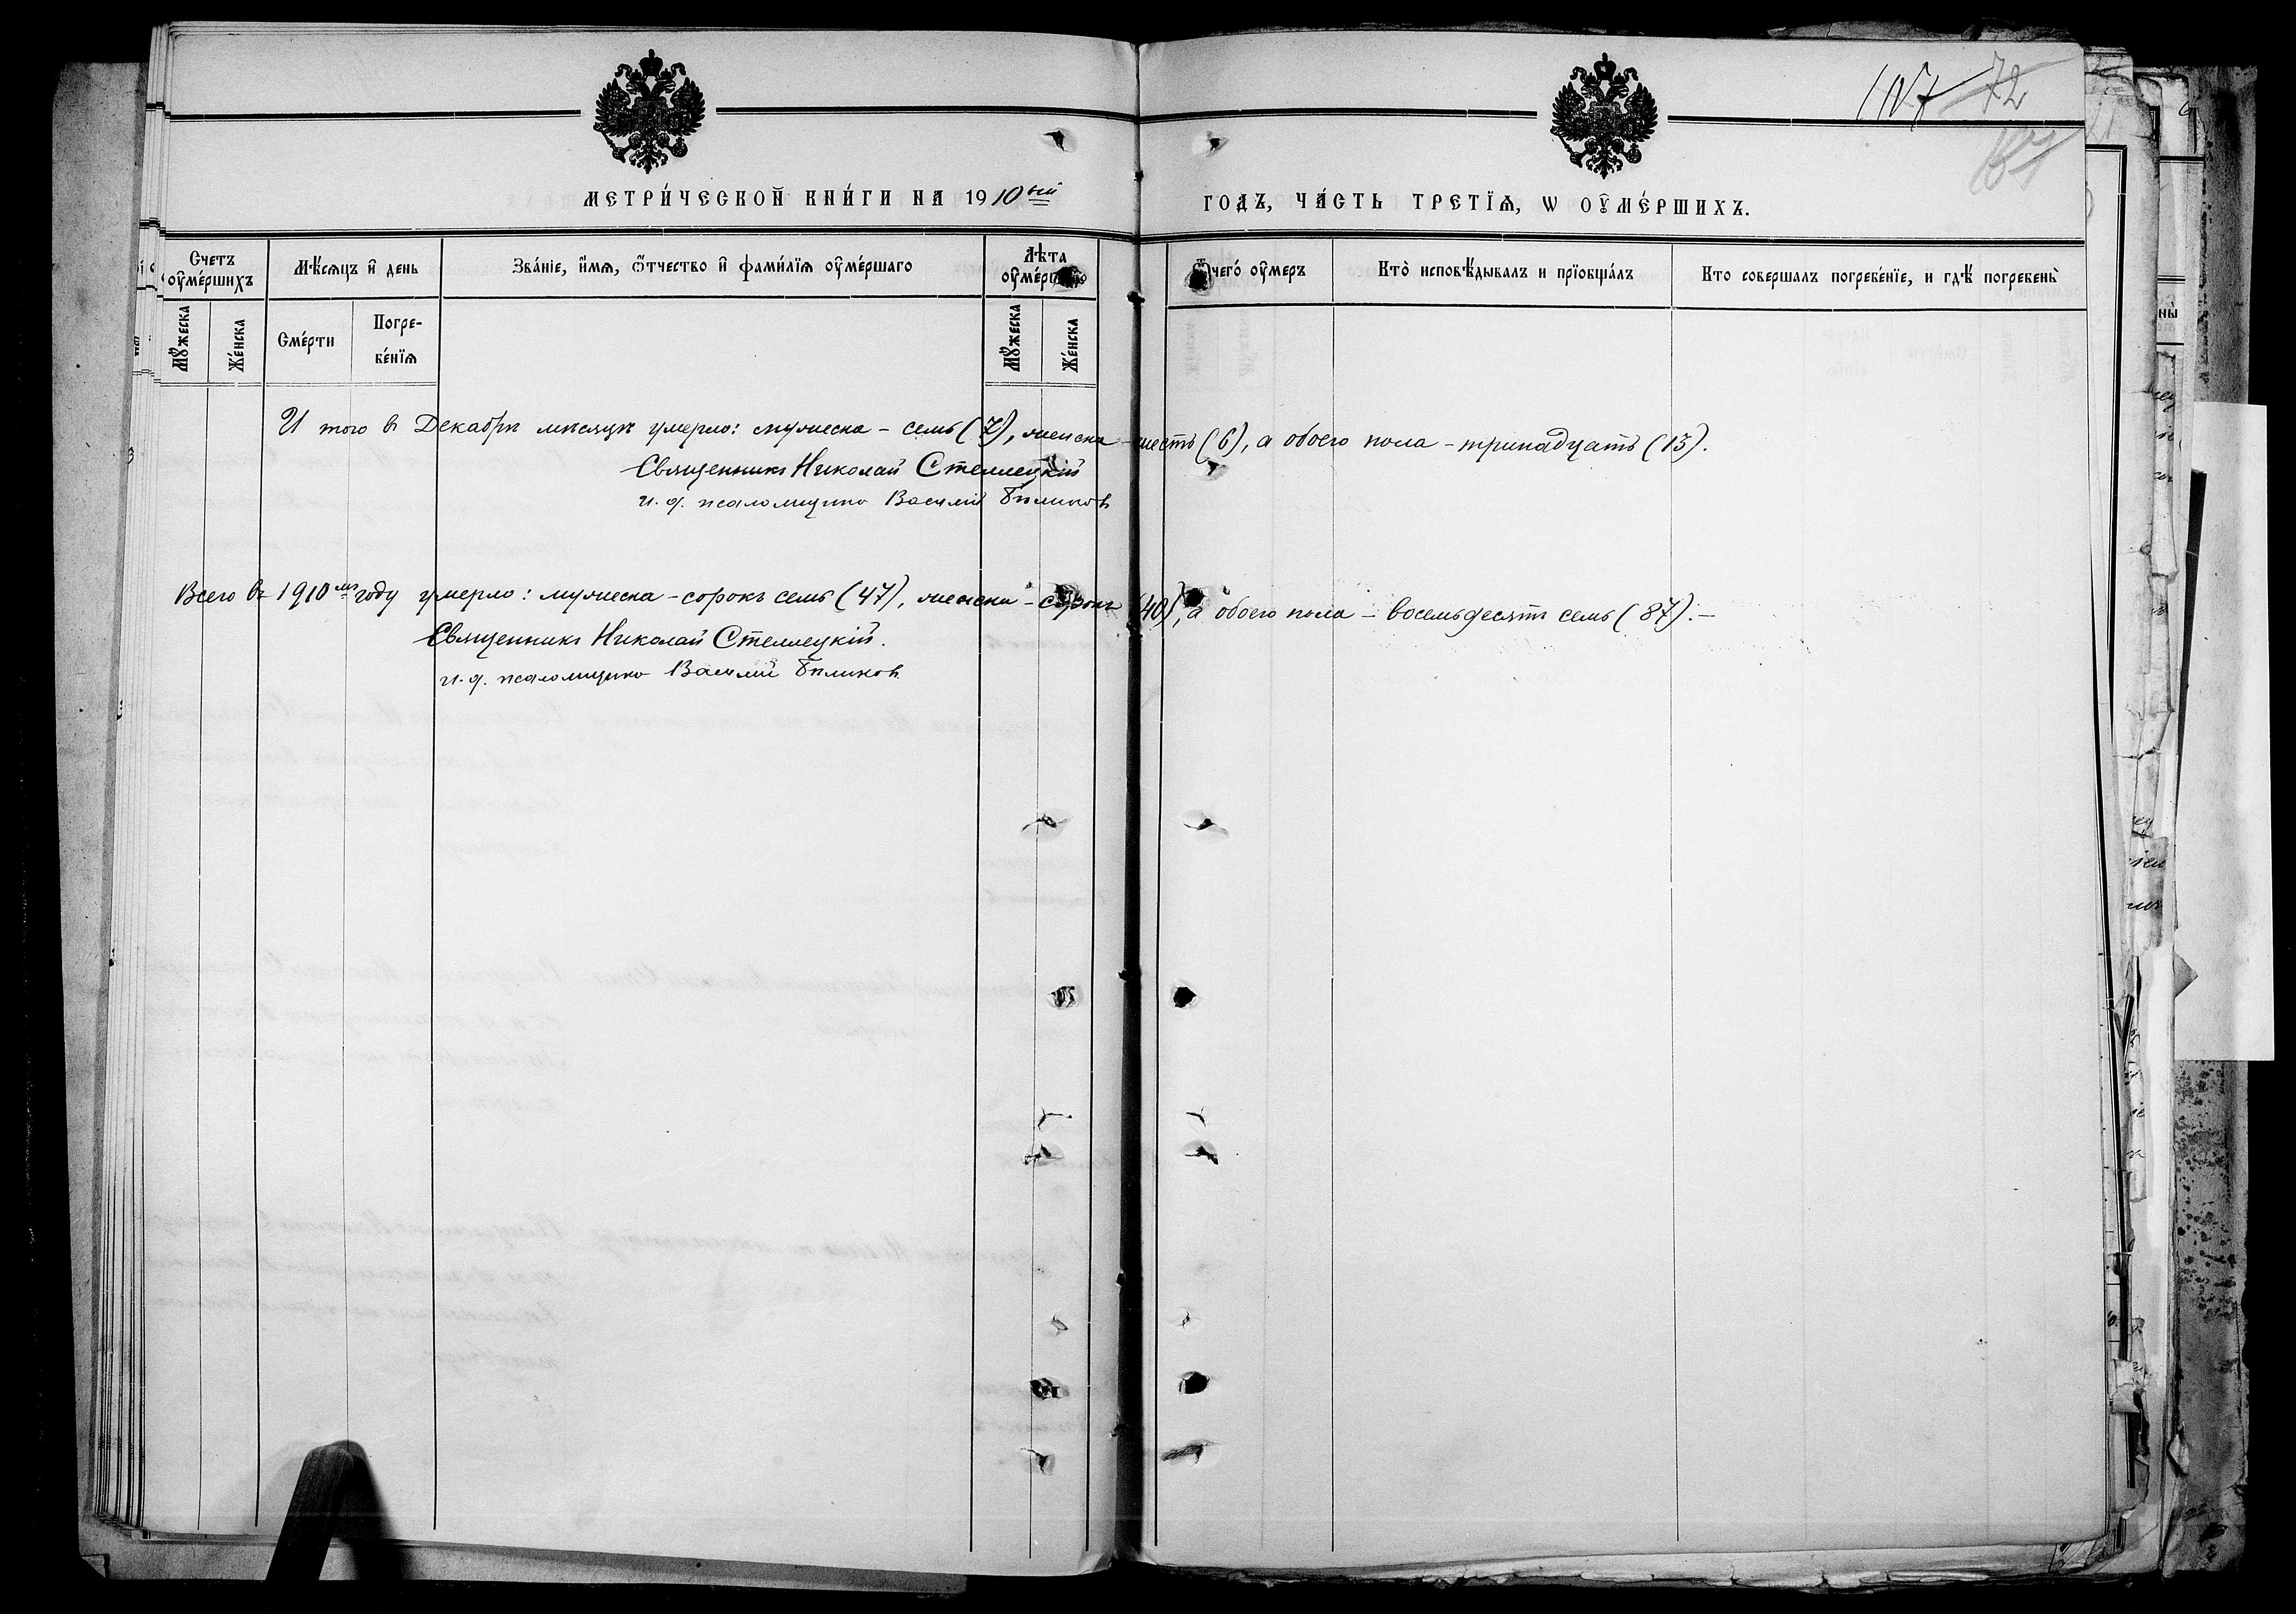 107 72
МЕТРИ́ЧЕСКОЙ КНИ́ГИ НА 1910ый ГОДЪ, ЧА́СТЬ ТРЕТІЯ, Ѡ ОУМЕ́РШИХЪ.
Счетъ оуме́ршихъ
Мѣ́сяцъ и день
Зва́ніе, и́мя, ѿтчество и фами́лія оуме́ршаго
Лѣта оуме́ршаго
Ѿ чегѡ́ оумеръ
Кто̀ исповѣ́дывалъ и пріобща́лъ
Кто совершалъ погребе́ніе, и гдѣ́ погребены̀
Мꙋжеска
Же́нска
Сме́рти
Погре-
бе́нія
Мꙋжеска
Же́нска
И того в Декабрѣ мѣсяцѣ умерло: мужеска – семь (7), женска – шесть (6), а обоего пола – тринадцать (13).
Священникъ Николай Стеллецкій
и. д. псаломщика Василій Бѣликовъ
Всего въ 1910мъ году умерло: мужеска – сорокъ семь (47), женска – сорокъ (40), а обоего пола – восемьдесятъ семь (87). –
Священникъ Николай Стеллецкій.
и. д. псаломщика Василій Бѣликовъ